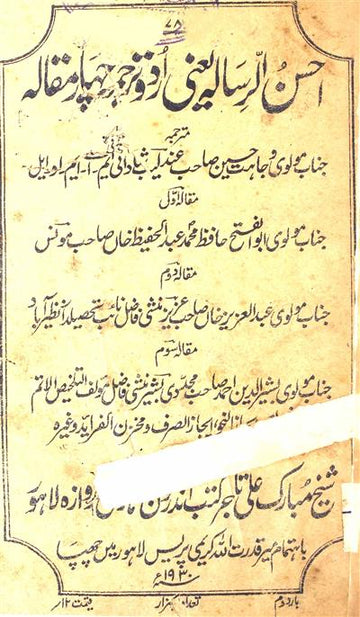 ۷۸۶
احسن الرسالہ یعنی اردو ترجمہ چہار مقالہ
مترجمہ
جناب مولوی وجاہت حسین صاحب عندلیب شادانی ایم۔اے۔ایم۔او۔ایل
مقالہ اوّل
جناب مولوی ابوالفتح حافظ محمد عبدالحفیظ خاں صاحب مونس
مقالہ دوم
جناب مولوی عبدالعزیز خاں صاحب عزیز منشی فاضل نائب تحصیلدار نظیر آباد
مقالہ سوم
جناب مولوی بشیر الدین احمد صاحب مجددی بشیر منشی فاضل مولف التلخیص الاتم
النحو ایجاز الصرف و مخزن الفرائد وغیرہ
شیخ مبارک علی تاجر کتب اندرون دروازہ لاہور
باہتمام میر قدرت اللہ کریمی پریس لاہور میں چھپا
۱۹۳۰ء
بار دوم تعداد ہزار قیمت ۱۲/